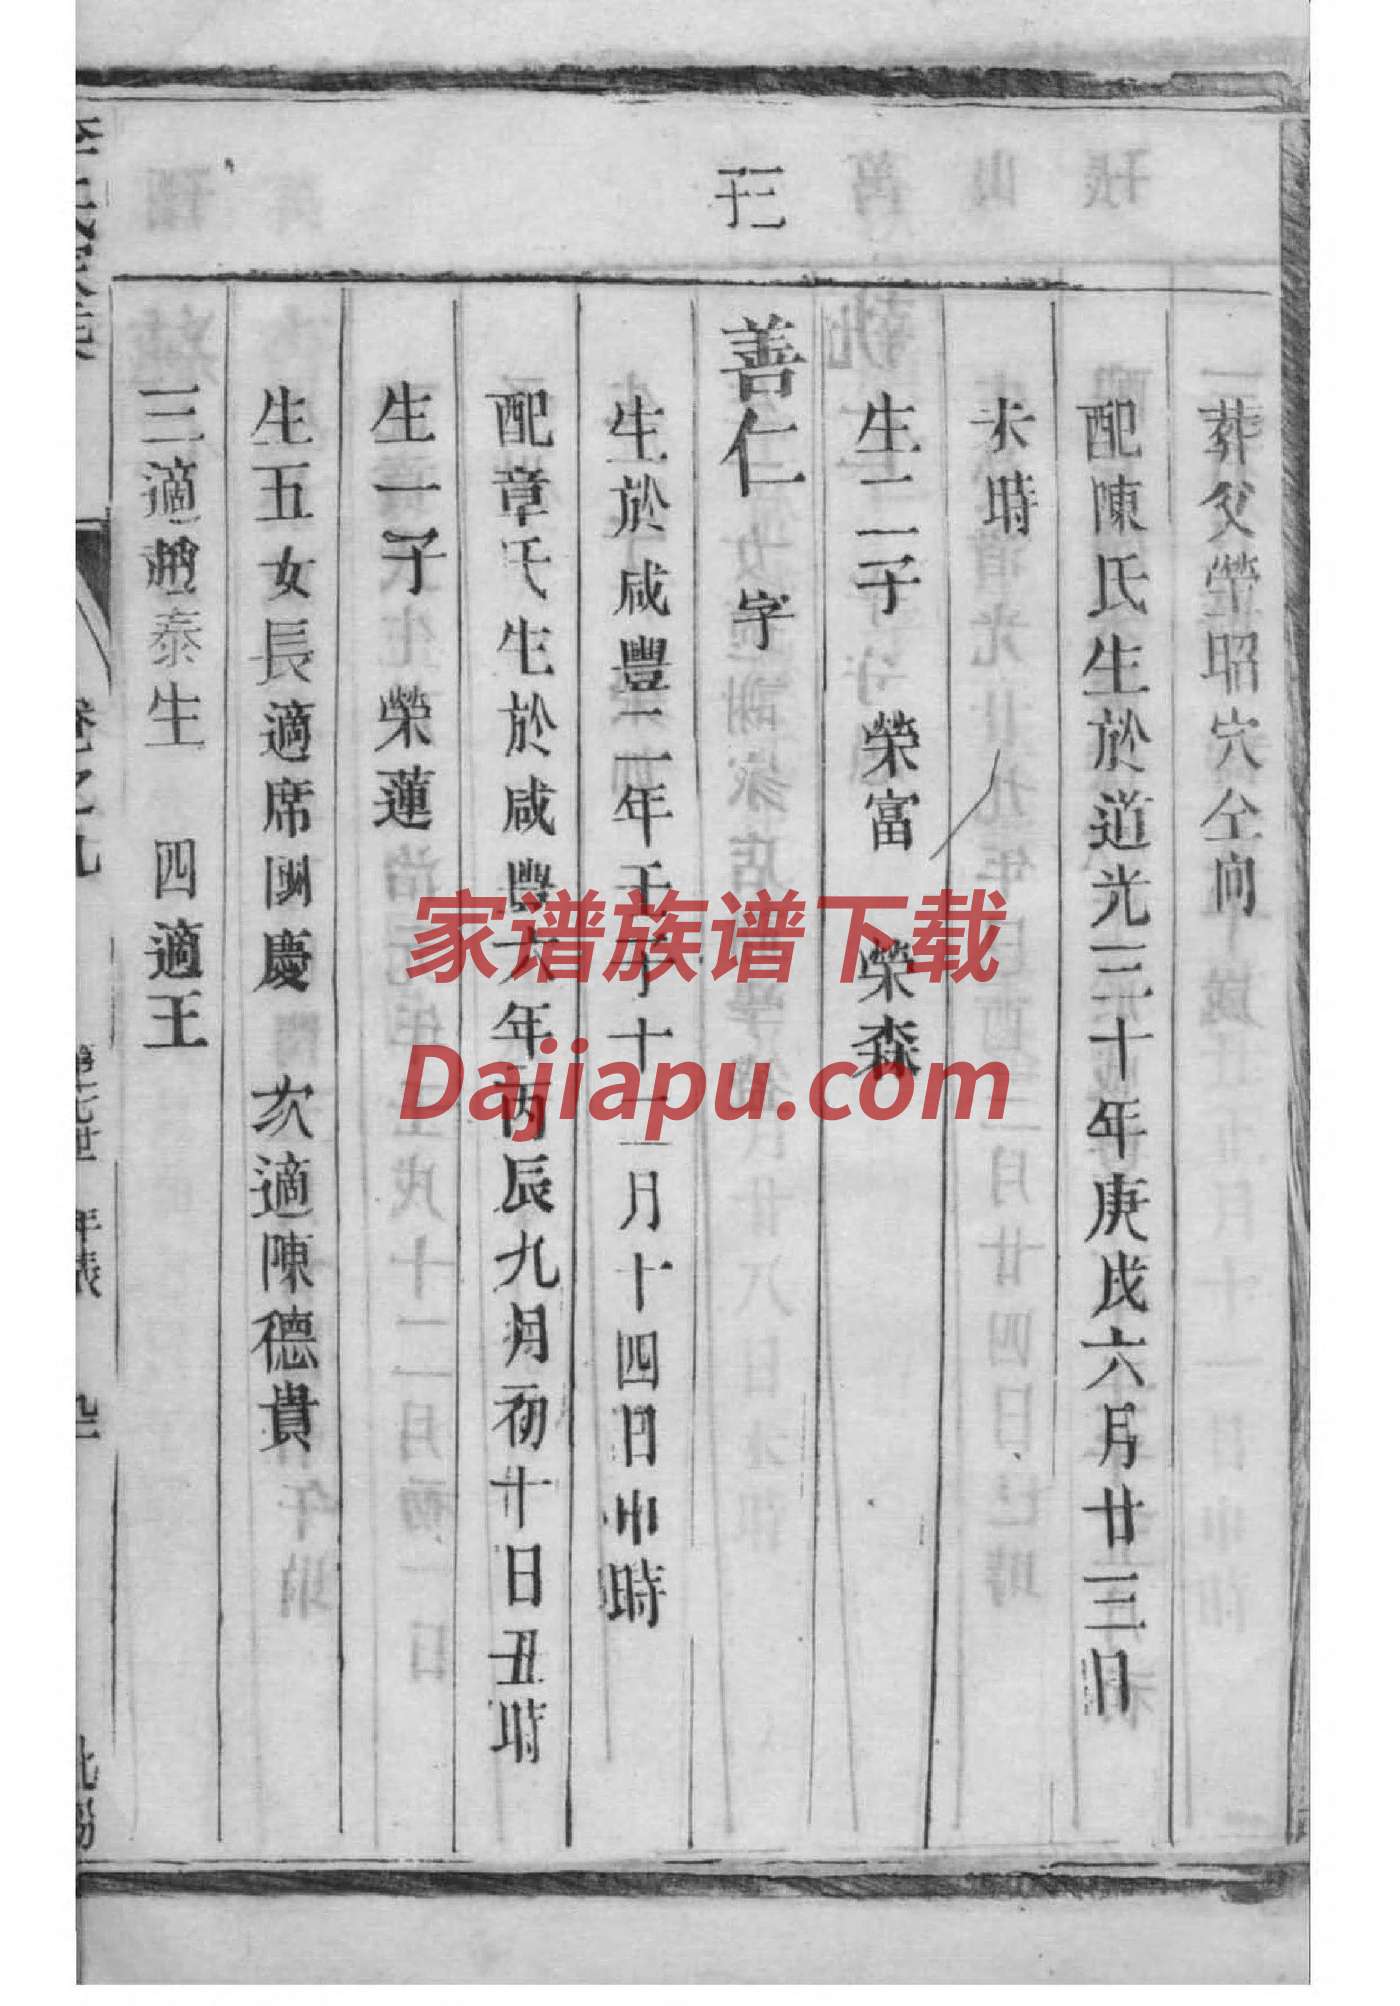 葬父塋昭穴仝向
配陳氏生於道光三十年庚戌六月廿三日
未時
生二子 榮富 榮森
善仁 字
生於咸豐二年壬子十二月十四日申時
配章氏生於咸豐六年丙辰九月初十日丑時
生一子 榮蓮
生五女長適席国慶 次適陳德貴
三適趙泰生 四適王
卷之九
年表
家谱族谱下载
Dajiapu.com